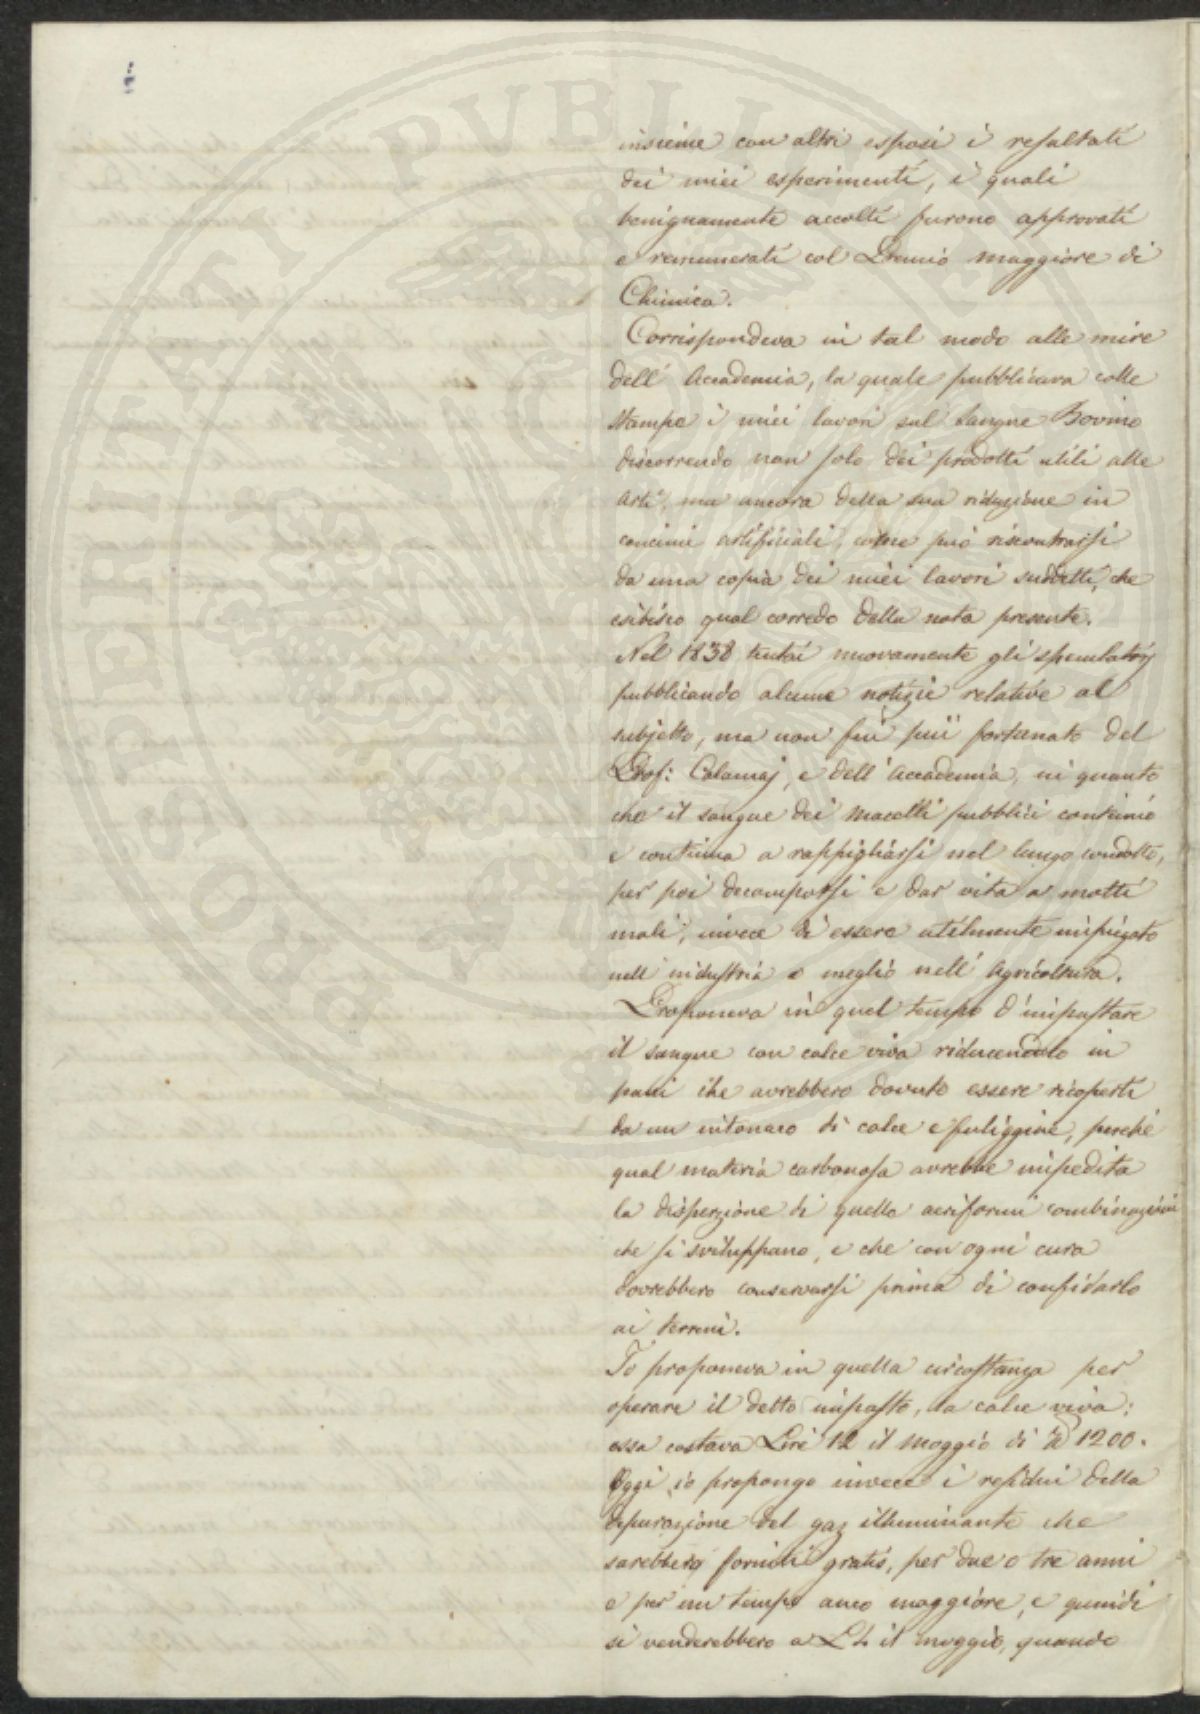 insieme con altri esposi i resultati
dei miei esperimenti, i quali
benignamente accolti furono approvati
e remunerati col Premio maggiore di
Chimica.
Corrispondeva in tal modo alle mire
dell' Accademia, la quale pubblicava colle
stampe i miei lavori sul Sangue Bovino
discorrendo non solo dei prodotti utili alle
arti, ma ancora della sua riduzione in
concimi artificiali, come può riscontrarsi
da una copia dei miei lavori suddetti, che
esibisco qual corredo della nota presente.
Nel 1838 tentai nuovamente gli speculatorj
pubblicando alcune notizie relative al
subjetto, ma non fui più fortunato del
Prof: Calamaj, e dell' Accademia, in quanto
che il sangue dei Macelli pubblici continuò
e continua a rappigliarsi nel lungo condotto,
per poi decomporsi e dar vita a molti
mali, invece di essere utilmente impiegato
nell' industria o meglio nell' Agricoltura.
Proponeva in quel tempo d'impastare
il sangue con calce viva riducendolo in
pani che avrebbero dovuto essere ricoperti
da un intonaco di calce e fuliggine, perché
qual materia carbonosa avrebbe impedita
la disperzione di quelle aeriformi combinazioni
che si sviluppano, e che con ogni cura
dovrebbero conservarsi prima di confidarlo
ai terreni.
Io proponeva in quella circostanza per
operare il detto impasto, la calce viva;
essa costava Lire 12 il moggio di 1200.
Oggi io propongo invece i residui della
depurazione del gaz illuminante che
sarebbero forniti gratis, per due o tre anni
e per un tempo anco maggiore, e quindi
si venderebbero a L 4 il moggio, quando
PROSPERITATI PVBLICAE